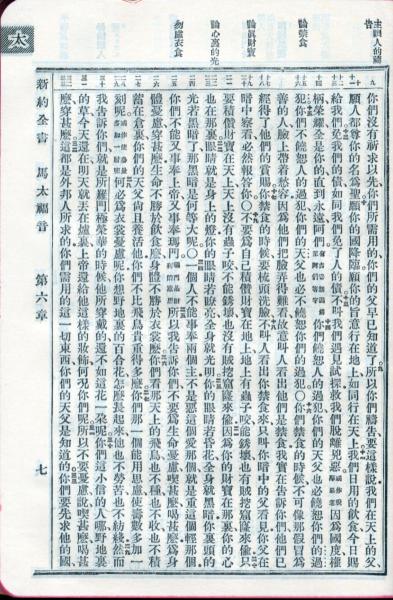 主訓人的禱告
論禁食
論眞財寶
論心裏的光
勿慮衣食
太
你們沒有祈求以先、你們所需用的、你們的父早已知道了。所以你們禱告、要這樣說、我們在天上的父、
願人都尊你的名爲聖、願你的國降臨、願你的旨意行在地上、如同行在天上、我們日用的飲食、今日賜
給我們、免我們的債、如同我們免了人的債、不叫我們遇見試探、救我們脫離兇惡、因爲國度、權
柄、榮耀、全是你的、直到永遠、阿們、你們饒恕人的過犯、你們的天父也必饒恕你們的過
犯、你們不饒恕人的過犯、你們的天父也必不饒恕你們的過犯○你們禁食的時候、不可像那假冒爲
善的人、臉上帶着愁容、因爲他們把臉弄得難看、故意叫人看出他們是禁食、我實在告訴你們、他們已
經得了他們的賞賜、你禁食的時候、要梳頭洗臉、不叫人看出你禁食來、只叫你暗中的父看見、你父在
暗中察看、必然報答你○不要爲自己積儹財寶在地上、地上有蟲子咬、能銹壞、也有賊挖窟窿來偷、只
要積儹財寶在天上、天上沒有蟲子咬、不能銹壞、也沒有賊挖窟窿來偷、因爲你的財寶在那裏、你的心
也在那裏、眼睛就是身上的燈、你的眼睛若瞭亮、全身就光明、你的眼睛若昏花、全身就黑暗、你裏頭的
光若黑暗了、那黑暗是何等大呢○一個人不能事奉兩個主、不是惡這個愛那個、就是重這個輕那個、
你們不能又事奉上帝、又事奉瑪門、所以我告訴你們、不要爲生命憂慮喫甚麼、喝甚麼、爲身
體憂慮穿甚麼、生命不勝於飲食麼、身體不勝於衣裳麼、你們看那天上的飛鳥、也不種、也不收、也不積
蓄在倉裏、你們的天父尚且養活他、你們不比飛鳥貴重得多麼、你們那一個能用思慮使壽數多加一
刻呢、何必爲衣裳憂慮呢、你想野地裏的百合花、怎麼長起來、他也不勞苦、也不紡綫、然而
我告訴你們、就是所羅門極榮華的時候、他所穿戴的、還不如這花一朵呢、你們這小信的人哪、野地裏
的草、今天還在、明天就丟在爐裏、上帝還給他這樣的妝飾、何況你們呢、所以不要憂慮說、喫甚麼、喝甚
麼、穿甚麼、這都是外邦人所求的、你們需用的這一切東西、你們的天父是知道的、你們要先求他的國
新約全書 馬太福音 第六章 七